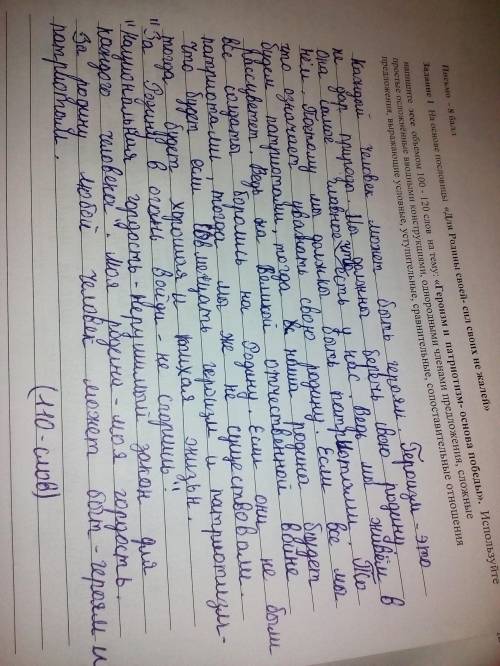 Письмо - 8 балл
Задание 1 На основе пословицы «Для Родины своей- сил своих не жалей»
напишите эссе объемом 100 - 120 слов на тему: «Героизм и патриотизм- основа победы». Используйте
простые осложнённые вводными конструкциями, однородными членами предложения, сложные
предложения, выражающие условные, уступительные, сравнительные, сопоставительные отношения
Героизм - это
каждый человек может быть героям
не дар природа. Мы должны беречь свою родину,
Она самое главное что есть у нас ведь мы живём в
ней. Поэтому мы должны быть патриотами. То
что означает уважать свою родину. Если все мы
будем патриотами, тогда и наша родина будет
рассцветет. Ведь на Великой отечественной войне
все солдаты боролись на Родину. Если они не были
патриота-ми тогда мы же не существовали.
Что будет если вмещать героизм и патриотизм-
тогда будет хорошая и тихая жизьн.
"За Родину в огне войди не сгоришь".
"Национальная гордость - нерушимый закон для
каждого человека. Моя родина - моя гордость.
За родину любой человек может быт - героям и
патриотом.
(110 - слов)